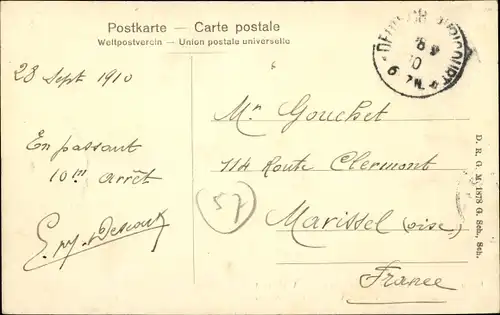 Postkarte — Carte postale
Weltpostverein — Union postale universelle
28 Sept 1910
En passant
10 m arrêt
Mr Gouchet
114 Route Clermont
Marissel (oise)
France
57
D. R. G. M. 1878 G. Sch., Sch.